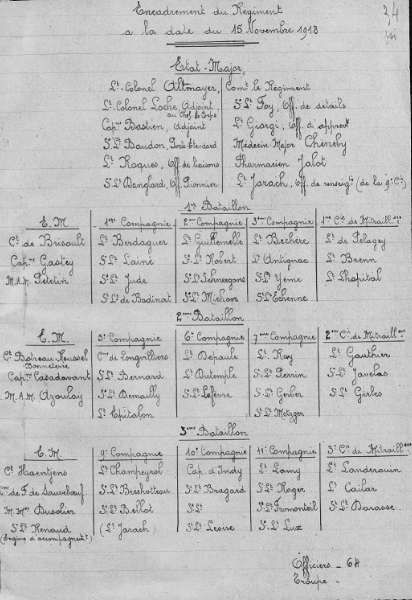 Encadrement du Régiment
à la date du 15 Novembre 1918
34
Etat-Major
Lt-Colonel Altmayer, Comt le Régiment
Lt-Colonel Loche, Adjoint au Chef de Corps S/Lt Foy, Off. de détails
Capne Bastien, Adjoint Lt Giorgi, Off. d'approvt
S/Lt Baudon, Porte Etendard Médecin-Major Chéneby
Lt Roques, Off. de liaisons Pharmacien Jalot
S/Lt Denglard, Off. Pionnier Lt Jarach, Off. de renseigt (de la 9e Cie)
1er Bataillon
E. M. 1ère Compagnie 2ème Compagnie 3ème Compagnie 1ère Cie de Mitraill.ses
Ct de Brisoult Lt Berdaguer Lt Guillemelle Lt Bechere Lt de Pelagey
Capne Gastey S/Lt Lainé S/Lt Robert Lt Antignac Lt Brenn
M.A.M. Peletin S/Lt Jude S/Lt Schneegans S/Lt Yeme Lt Lhopital
S/Lt de Bodinat S/Lt Michon S/Lt Etienne
2ème Bataillon
E. M. 5e Compagnie 6e Compagnie 7ème Compagnie 2ème Cie de Mitraill.ses
Ct Botreau Roussel Bonneterre Cne de Longvilliers Lt Depaule Lt Roy Lt Gauthier
Capne Casadavant S/Lt Bernard Lt Dutemple S/Lt Perrin S/Lt Jambas
M.A.M. Azoulay S/Lt Demailly S/Lt Lefevre S/Lt Gerber S/Lt Girles
Lt Epitalon S/Lt Metzger
3ème Bataillon
E. M. 9e Compagnie 10e Compagnie 11e Compagnie 3e Cie de Mitraill.ses
Ct Haentjens Lt Champeyrol Cap. d'Indy Lt Lamy Lt Landerouin
Cne de F. de Sauvebœuf S/Lt Bresholteau S/Lt Bragard S/Lt Roger Lt Cailar
M. Mor Dusolier S/Lt Bellot S/Lt S/Lt Fromonteil S/Lt Barasse
S/Lt Renaud (Lt Jarach) S/Lt Lesire S.Lt Lux
(Engins d'accompagnt)
Officiers - 64
Troupe -